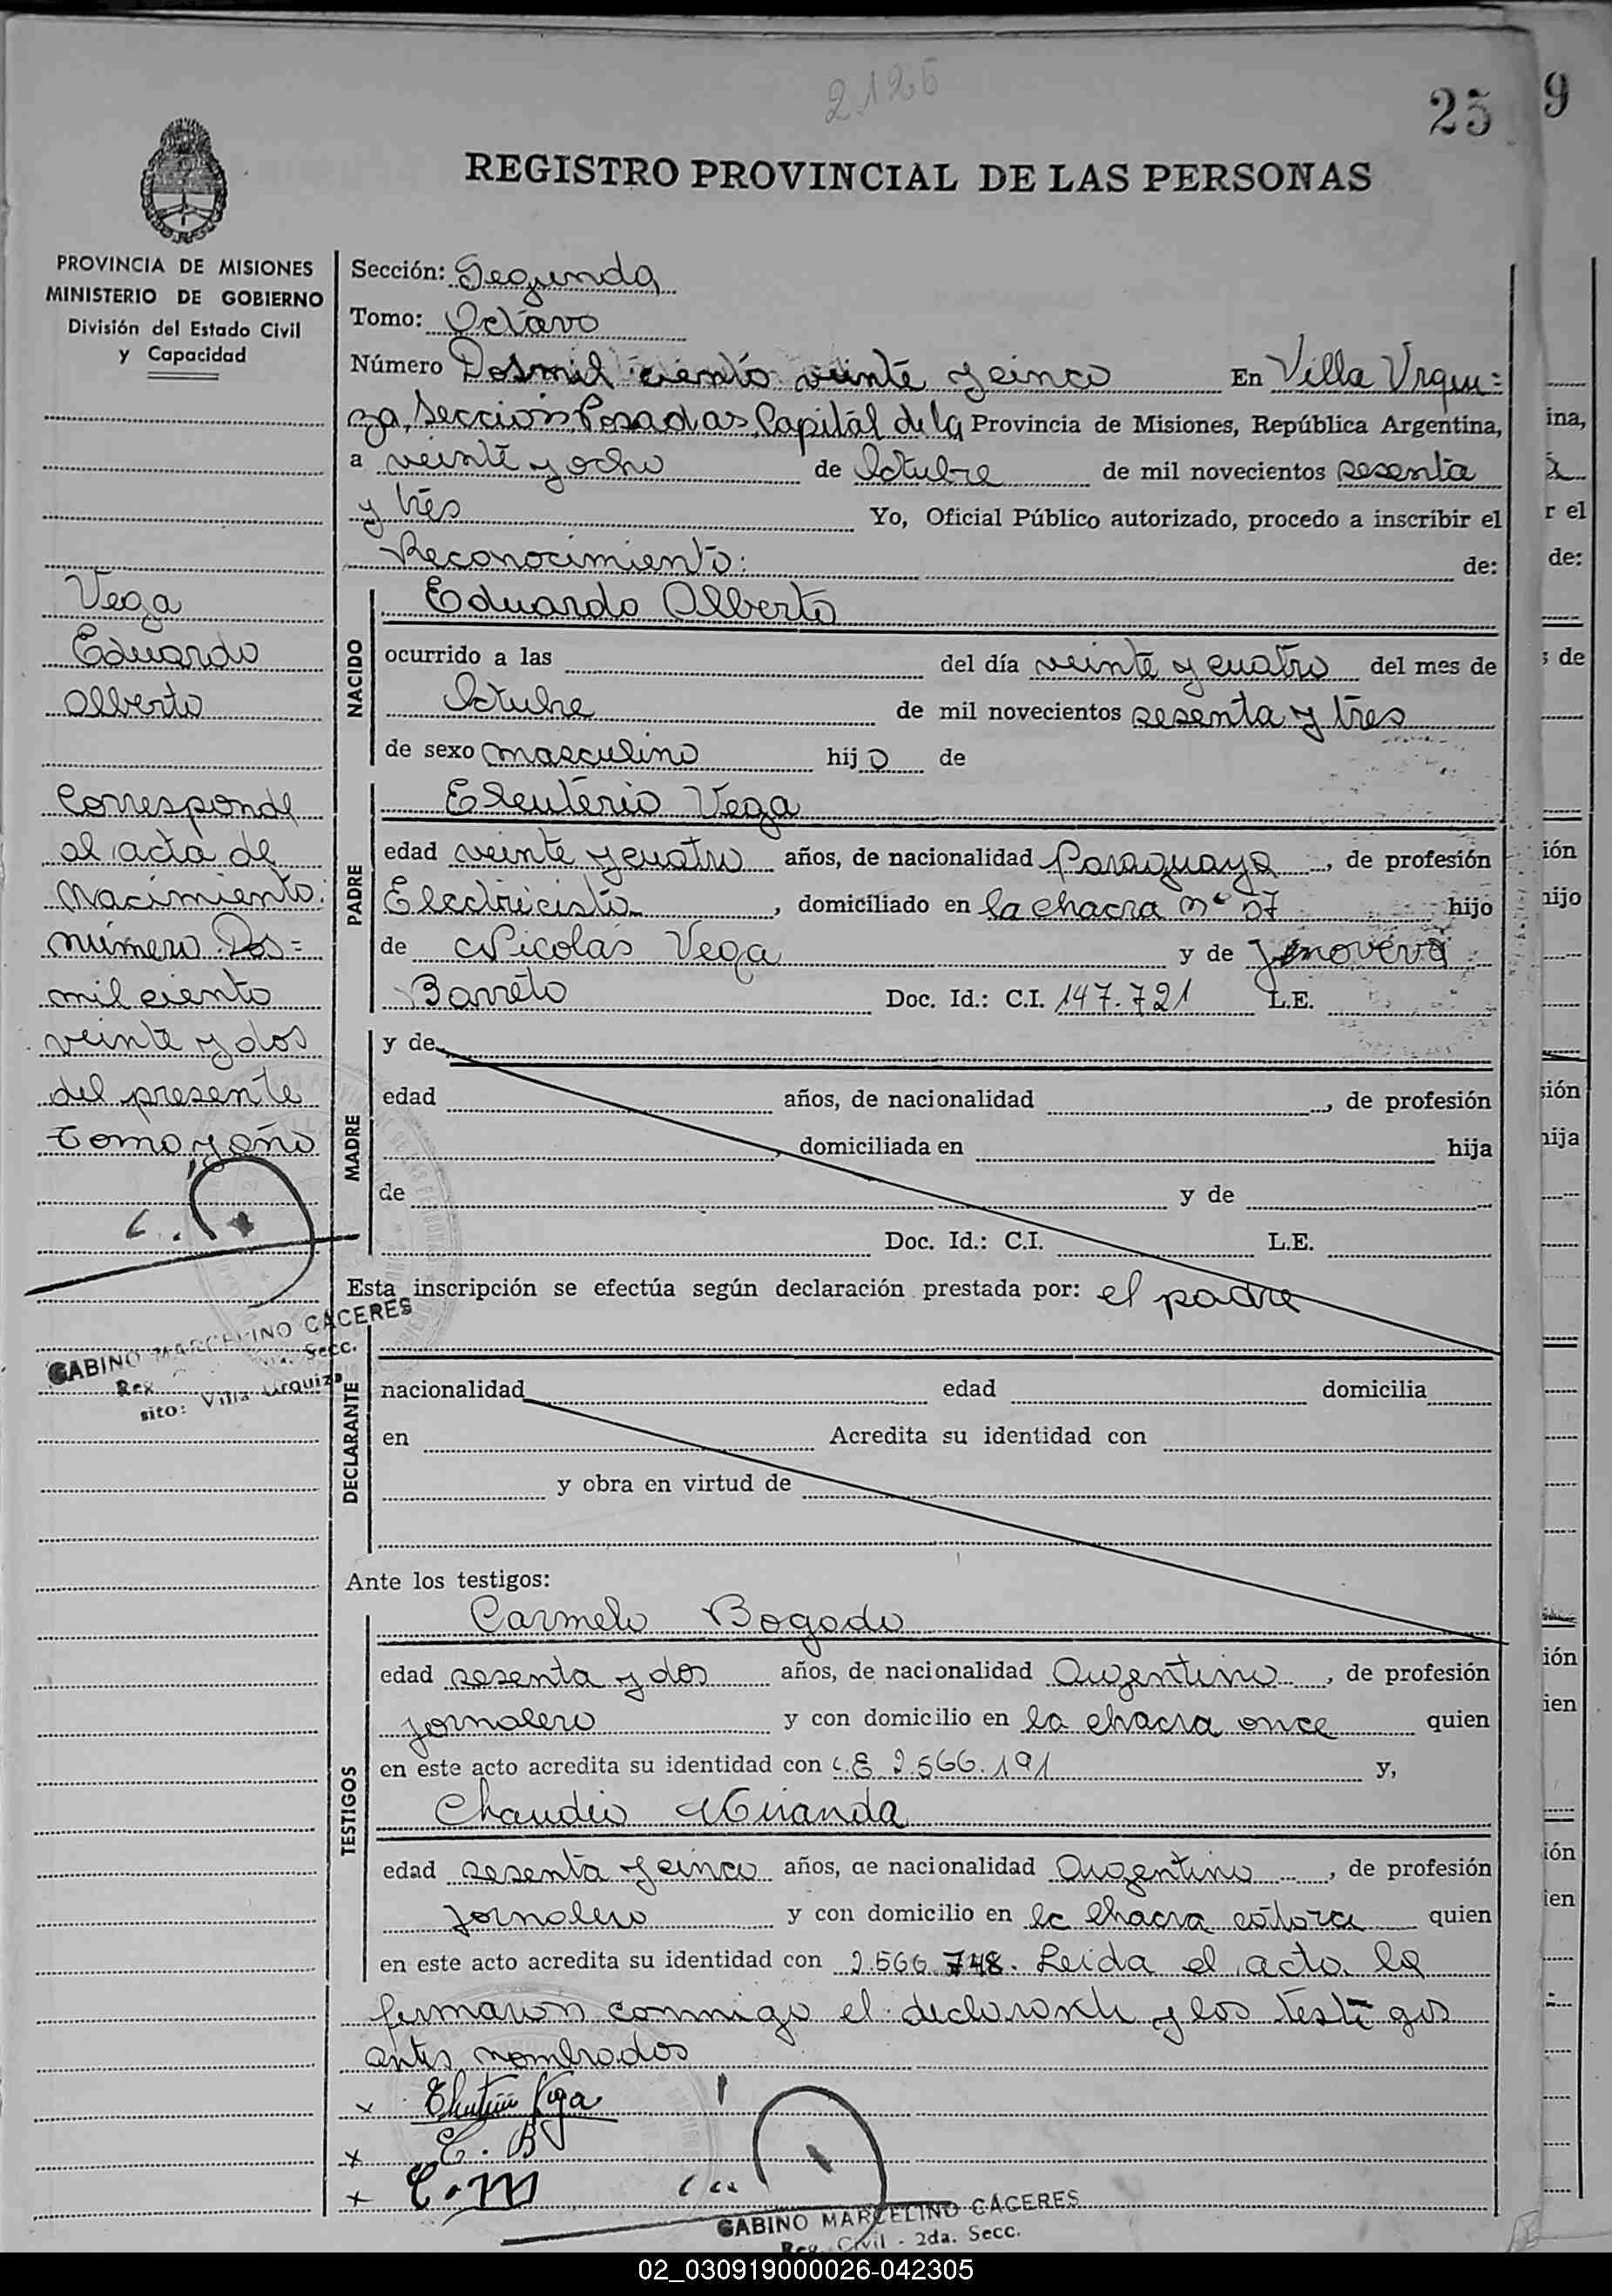 2125
25 9
REGISTRO PROVINCIAL DE LAS PERSONAS
PROVINCIA DE MISIONES
MINISTERIO DE GOBIERNO
División del Estado Civil
y Capacidad
Vega
Eduardo
Alberto
Corresponde
al acta de
Nacimiento
número Dos=
mil ciento
veinte y dos
del presente
tomo y año
GABINO MARCELINO CACERES
Secc.
sito: Villa Urquiza
Sección: Segunda
Tomo: Octavo
Número Dosmil ciento veinte y cinco En Villa Urqui=
za, Sección Posadas, Capital de la Provincia de Misiones, República Argentina,
a veinte y ocho de Octubre de mil novecientos sesenta
y tres Yo, Oficial Público autorizado, procedo a inscribir el
Reconocimiento: de:
NACIDO
Eduardo Alberto
ocurrido a las del día veinte y cuatro del mes de
Octubre de mil novecientos sesenta y tres
de sexo masculino hijo de
PADRE
Eleuterio Vega
edad veinte y cuatro años, de nacionalidad Paraguaya, de profesión
Electricista, domiciliado en la chacra nº 37 hijo
de Nicolás Vega y de Jenoveva
Barreto Doc. Id.: C.I. 147.721 L.E.
MADRE
y de
edad años, de nacionalidad , de profesión
, domiciliada en hija
de y de
Doc. Id.: C.I. L.E.
Esta inscripción se efectúa según declaración prestada por: el padre
DECLARANTE
nacionalidad edad domicilia
en Acredita su identidad con
y obra en virtud de
Ante los testigos:
TESTIGOS
Carmelo Bogado
edad sesenta y dos años, de nacionalidad Argentino, de profesión
jornalero y con domicilio en la chacra once quien
en este acto acredita su identidad con L.E 2.566.191 y,
Claudio Miranda
edad sesenta y cinco años, de nacionalidad Argentino, de profesión
Jornalero y con domicilio en la chacra catorce quien
en este acto acredita su identidad con 2.566.748. Leida el acta la
firmaron conmigo el declarante y los testigos
antes nombrados
x Eleuterio Vega
x C. B
x C. M
GABINO MARCELINO CACERES
Reg. Civil - 2da. Secc.
02_030919000026-042305